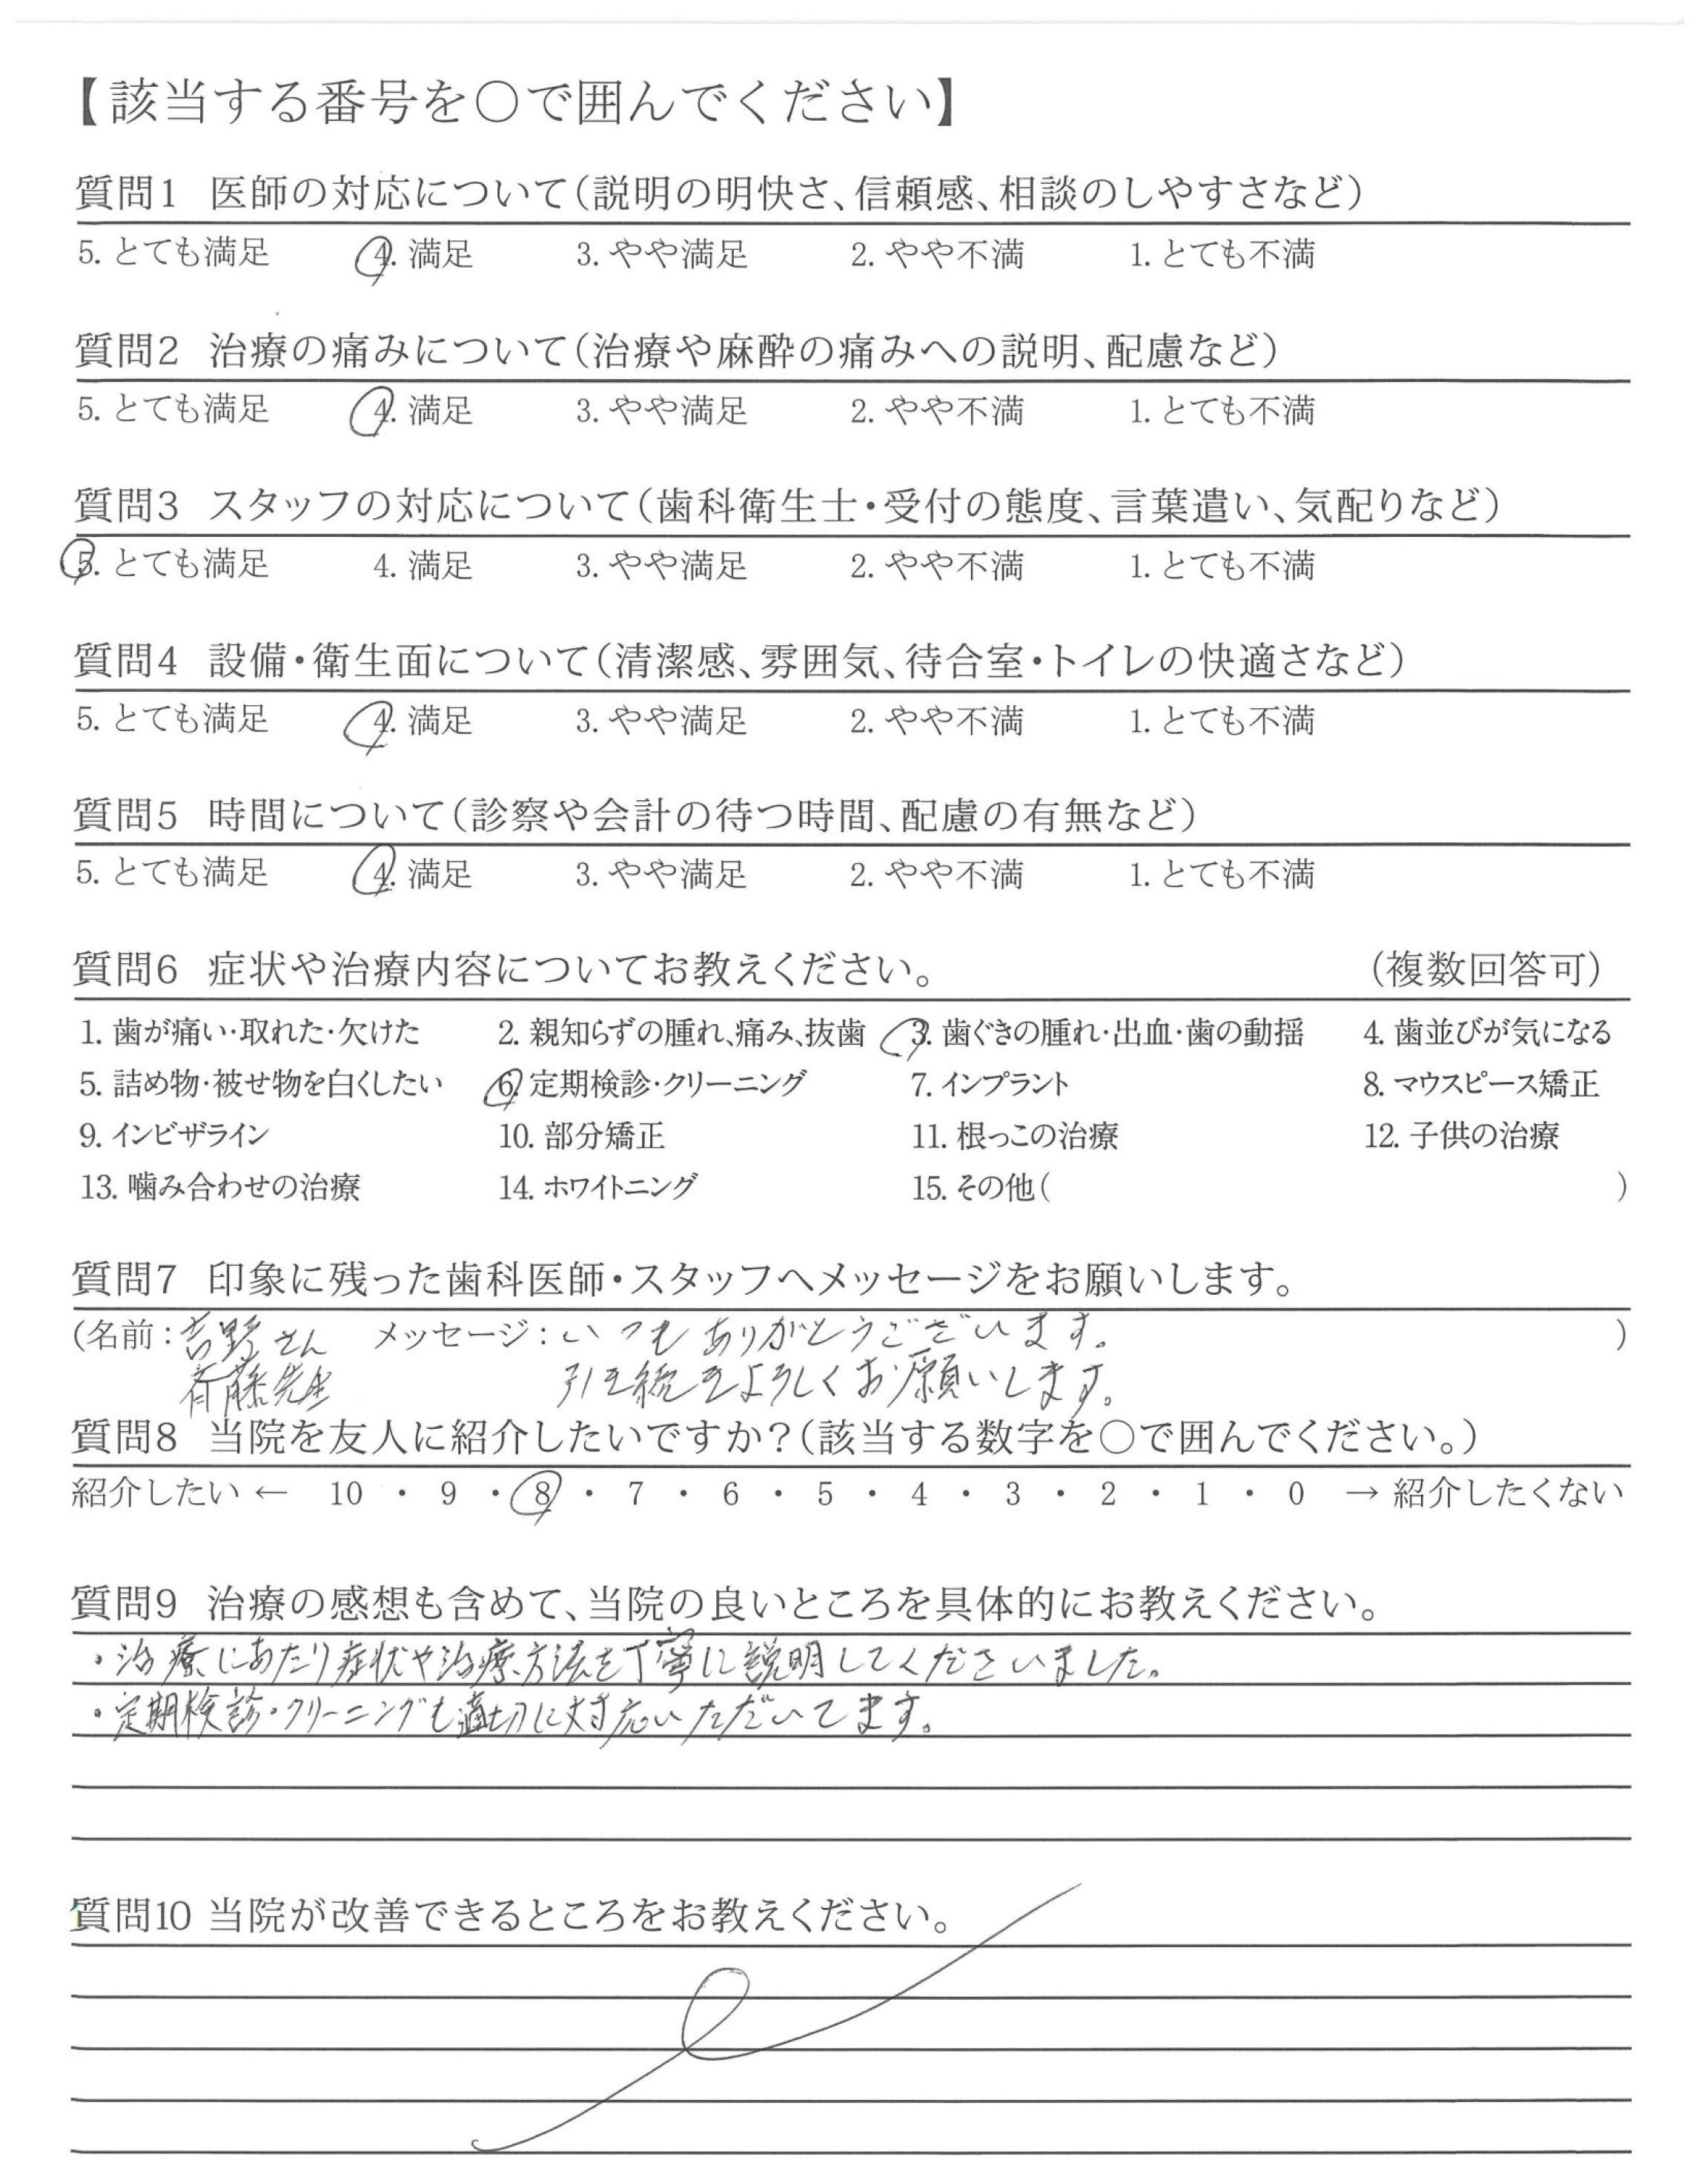 【該当する番号を○で囲んでください】
質問1 医師の対応について(説明の明快さ、信頼感、相談のしやすさなど)
5. とても満足 4. 満足 3. やや満足 2. やや不満 1. とても不満
質問2 治療の痛みについて(治療や麻酔の痛みへの説明、配慮など)
5. とても満足 4. 満足 3. やや満足 2. やや不満 1. とても不満
質問3 スタッフの対応について(歯科衛生士・受付の態度、言葉遣い、気配りなど)
5. とても満足 4. 満足 3. やや満足 2. やや不満 1. とても不満
質問4 設備・衛生面について(清潔感、雰囲気、待合室・トイレの快適さなど)
5. とても満足 4. 満足 3. やや満足 2. やや不満 1. とても不満
質問5 時間について(診察や会計の待つ時間、配慮の有無など)
5. とても満足 4. 満足 3. やや満足 2. やや不満 1. とても不満
質問6 症状や治療内容についてお教えください。 (複数回答可)
1. 歯が痛い・取れた・欠けた 2. 親知らずの腫れ、痛み、抜歯 3. 歯ぐきの腫れ・出血・歯の動揺 4. 歯並びが気になる
5. 詰め物・被せ物を白くしたい 6. 定期検診・クリーニング 7. インプラント 8. マウスピース矯正
9. インビザライン 10. 部分矯正 11. 根っこの治療 12. 子供の治療
13. 噛み合わせの治療 14. ホワイトニング 15. その他( )
質問7 印象に残った歯科医師・スタッフへメッセージをお願いします。
(名前:吉野さん メッセージ:いつもありがとうございます。 )
斉藤先生 引き続きよろしくお願いします。
質問8 当院を友人に紹介したいですか?(該当する数字を○で囲んでください。)
紹介したい ← 10 ・ 9 ・ 8 ・ 7 ・ 6 ・ 5 ・ 4 ・ 3 ・ 2 ・ 1 ・ 0 → 紹介したくない
質問9 治療の感想も含めて、当院の良いところを具体的にお教えください。
・治療にあたり症状や治療方法を丁寧に説明してくださいました。
・定期検診・クリーニングも適切に対応いただいてます。
質問10 当院が改善できるところをお教えください。